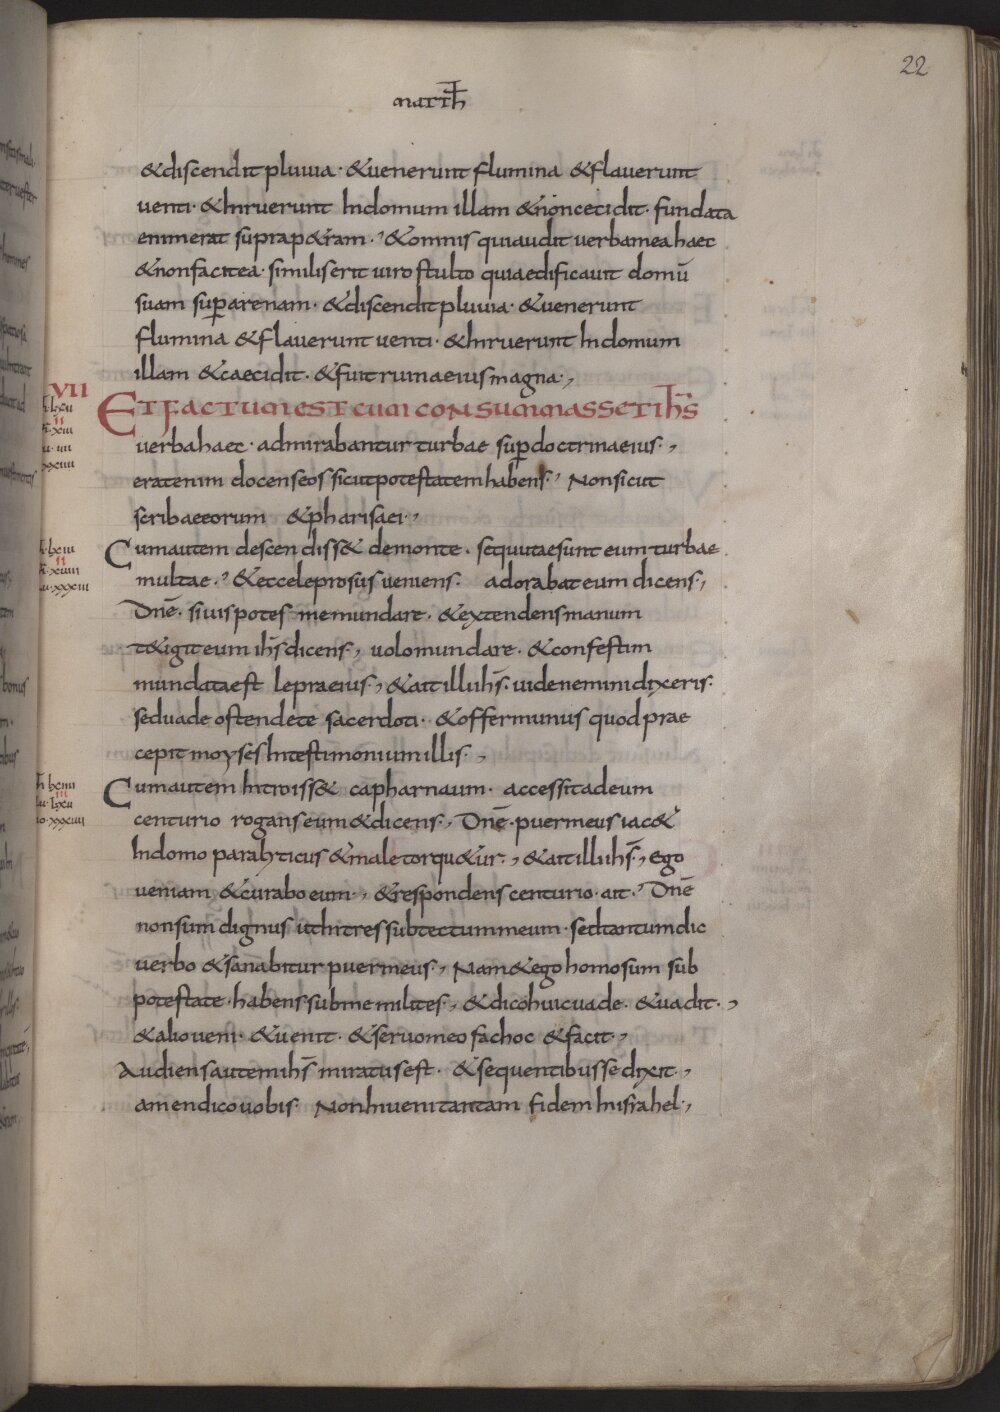 22
matth̄
&discendit pluuia · &uenerunt flumina &flauerunt
uenti · &Inruerunt Indomum illam &noncecidit · fundata
enimerat suprap&ram · &omnis quiaudit uerbamea haec
&nonfacitea · similiserit uiro stulto quiaedificauit domū
suam sup̲arenam · &discenditpluuia · &uenerunt
flumina &flauerunt uenti · &Inruerunt Indomum
illam &caecidit · &fuit ruinaeiusmagna ·,
VII
ETFACTUMEST CUM CONSUMMASSET IH̄S
uerbahaec · admirabantur turbae sup̲doctrinaeius ·,
eratenim docenseos sicutpotestatemhabens ·, Nonsicut
scribaeeorum &pharisaei ·,
Cumautem descendiss& demonte · sequutaesunt eum turbae
multae · &ecceleprosus ueniens · adorabat eum dicens,
Dn̄e · siuispotes memundare · &extendensmanum
t&igit eum ih̄s dicens ·, uolomundare · &confestim
mundataest lepraeius ·, &aitilliih̄s · uidenemini dixeris ·
seduade ostendete sacerdoti · &offermunus quod prae
cepit moyses Intestimonium illis ·,
Cumautem Introiss& capharnaum · accessitadeum
centurio roganseum &dicens ·, Dn̄e · puermeus iac&
Indomo paralyticus &male torqu&ur ·, &aitilliih̄s ·, Ego
ueniam &curabo eum ·, &respondens centurio · ait · Dn̄e
nonsum dignus utIntres subtectummeum · sedtantumdic
uerbo &sanabitur puermeus ·, Nam&ego homosum sub
potestate · habens subme milites ·, &dicohuicuade · &uadit ·,
&alioueni · &uenit · &seruomeo fachoc &facit ·,
Audiensautemih̄s miratusest · &sequentibusse dixit ·,
amendicouobis · NonInuenitantam fidem Inisrahel ·,